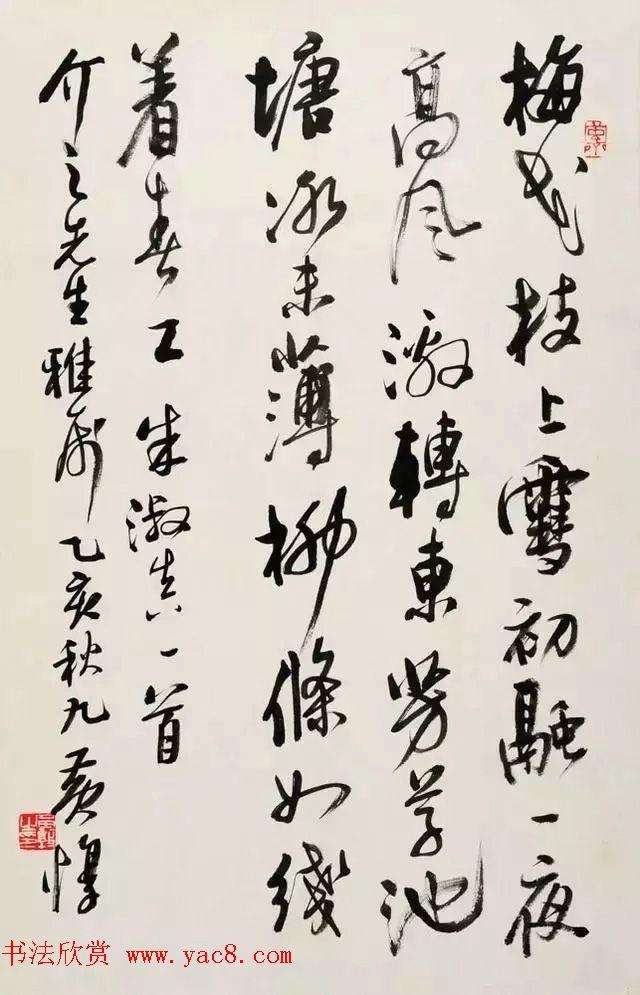 梅花枝上雪初融一夜
高风激转东芳草池
塘冰未薄柳條如线
着春工朱淑真一首
介之先生雅属乙亥秋九黄惇
书法欣赏 www.yac8.com